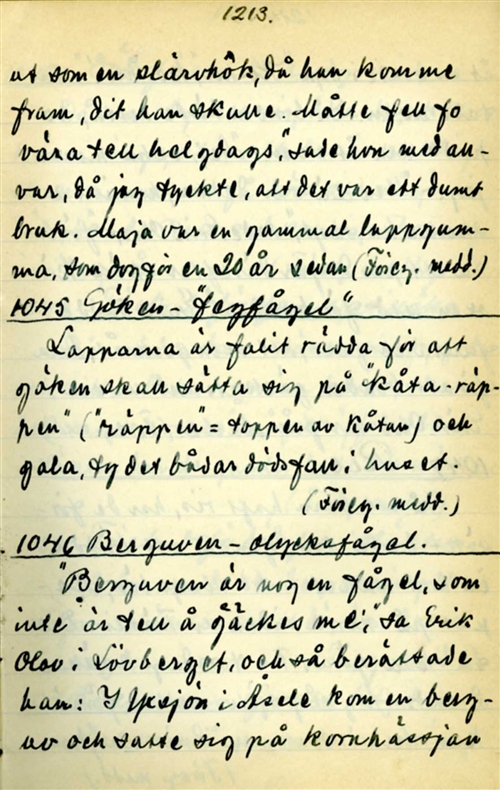 1213.
ut som en slarvhôk, då han komme
fram, dit han skulle. Måtte fell fo
våra tell helgdags," sade hon med all-
var, då jag tyckte, att det var ett dumt
bruk. Maja var en gammal lappgum-
ma, som dog för en 20 år sedan (Föreg. medd.)
1045 Göken - "fegfågel"
Lapparna är falit rädda för att
göken skall sätta sig på "kåta-räp-
pen" ("räppen" = toppen av kåtan) och
gala, ty det bådar dödsfall i huset.
(Föreg. medd.)
1046 Berguven - olycksfågel.
"Berguven är nog en fågel, som
inte är tell å gäckes mé," sa Erik
Olov i Lövberget, och så berättade
han: I Yxsjön i Åsele kom en berg-
uv och satte sig på kornhässjan